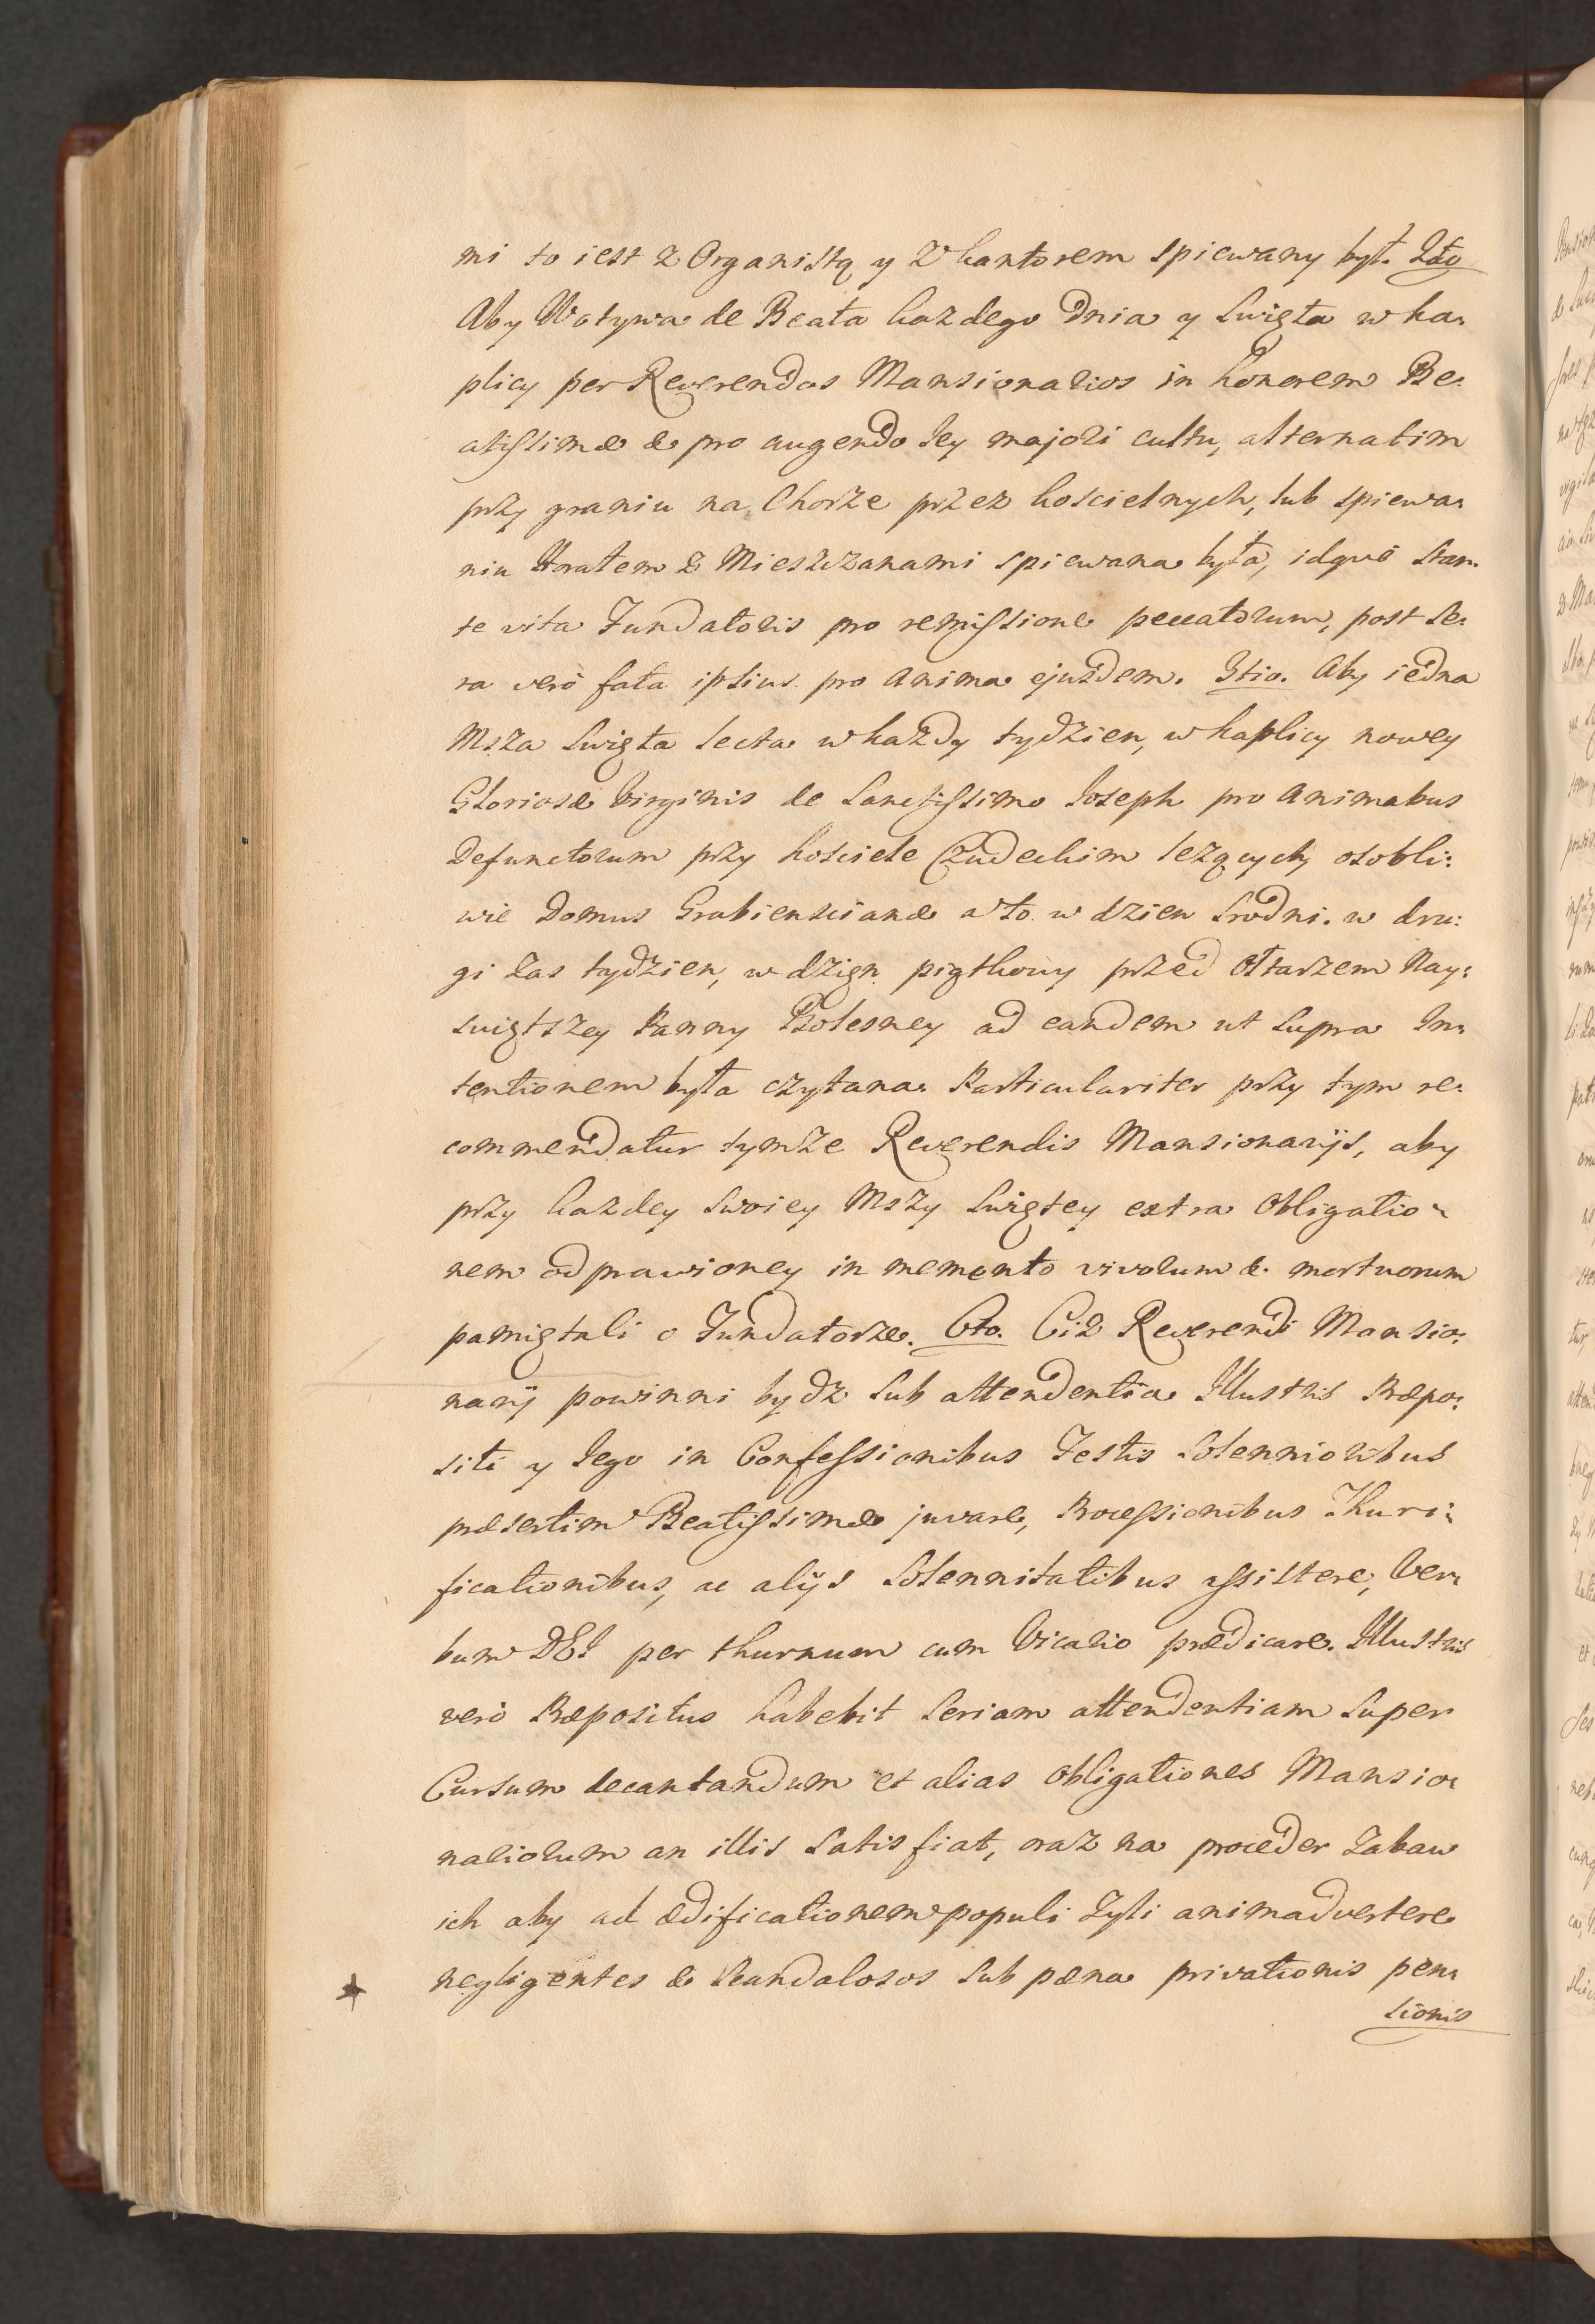 mi to iest z Organistą y z kantorem spiewany był. 2do
Aby Wotywa de Beata każdego Dnia y Swięta w ka:
plicy per Reverendos Mansionarios in honorem Be:
atissimæ & pro augendo Jey majori cultu, alternatim
przy graniu na Chorze przez koscielnych, lub spiewa:
niu z Mieszczanami spiewana była, idque stan:
te vita Fundatoris pro remissione peccatorum, post se:
ra verò fata ipsius pro anima ejusdem. 3tio. Aby iedna
Msza Swięta lecta w każdy tydzien, w kaplicy nowey
Gloriosæ Virginis de Sanctissimo Joseph pro Animabus
Defunctorum przy kosciele Czudeckim leżących osobli:
wie Domus Grabienscianæ a to w dzien srodni. w dru:
gi zas tydzien, w dzięn piątkowy przed Ołtarzem Nay:
swiętszey Panny Bolesney ad eandem ut supra In:
tentionem była czytana. Particulariter przy tym re:
commendatur tymże Reverendis Mansionarijs, aby
przy każdey swoiey Mszy Swiętey extra Obligatio:
nem odprawioney in memento vivorum & mortuorum
pamiętali o Fundatorze. 4to. Ciż Reverendi Mansio:
narij powinni bydz sub attendentia Illustris Præpo:
siti y Jego in Confessionibus Festis Solennioribus
præsertim Beatissimæ juvare, Processionibus Thuri:
ficationibus, ac alijs Solennitatibus assistere, Ver:
bum DEI per thurnum cum Vicario prædicare. Illustris
verò Præpositus habebit seriam attendentiam super
Cursum decantandum et alias obligationes Mansio:
nariorum an illis satis fiat, oraz na proceder zabaw
ich aby ad ædificationem populi żyli animadvertere
negligentes & scandalosos sub pæna privationis pen:
sionis